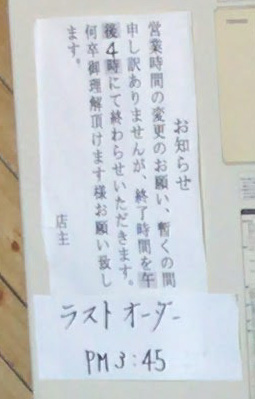 お知らせ
営業時間の変更のお願い、暫くの間
申し訳ありませんが、終了時間を午
後4時にて終わらせいただきます。
何卒御理解頂けます様お願い致し
ます。
店主
ラストオーダー
PM3:45